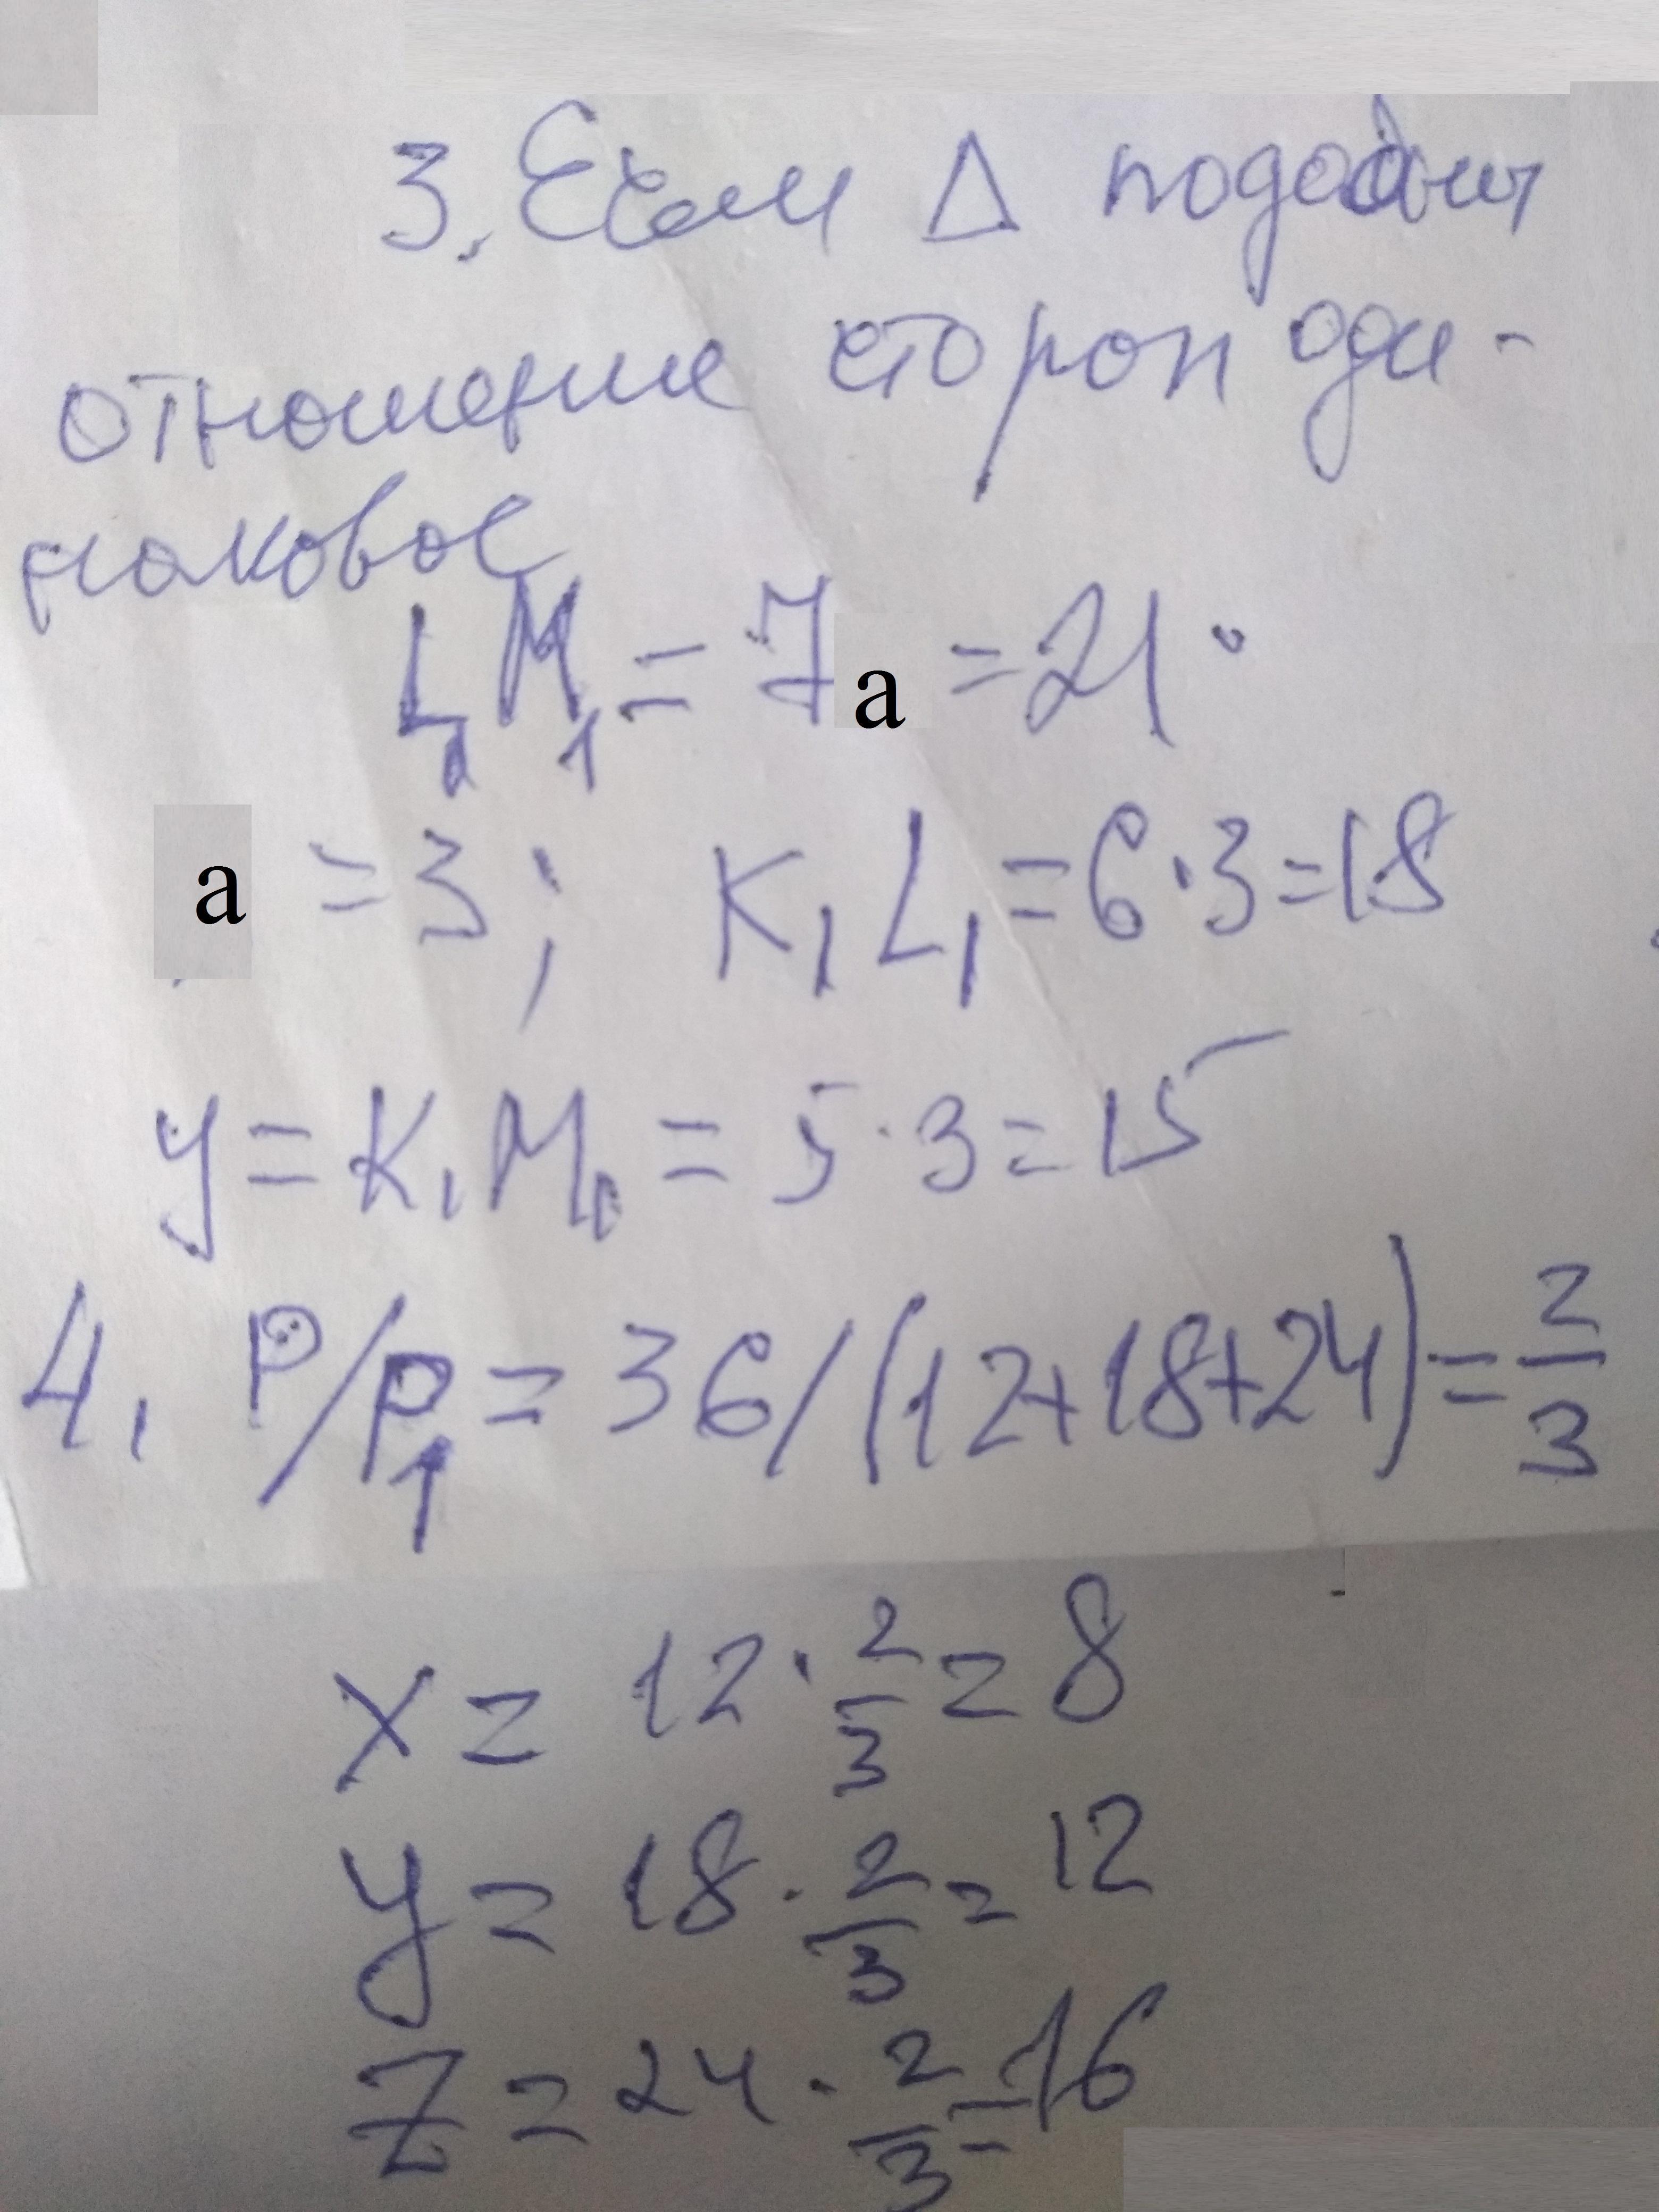 3. Если Δ подобны
отношение сторон оди-
наковое
L₁M₁ = 7a = 21
a = 3; K₁L₁ = 6·3 = 18
y = K₁M₁ = 5·3 = 15
4. P/P₁ = 36/(12+18+24) = 2/3
x = 12·2/3 = 8
y = 18·2/3 = 12
z = 24·2/3 = 16